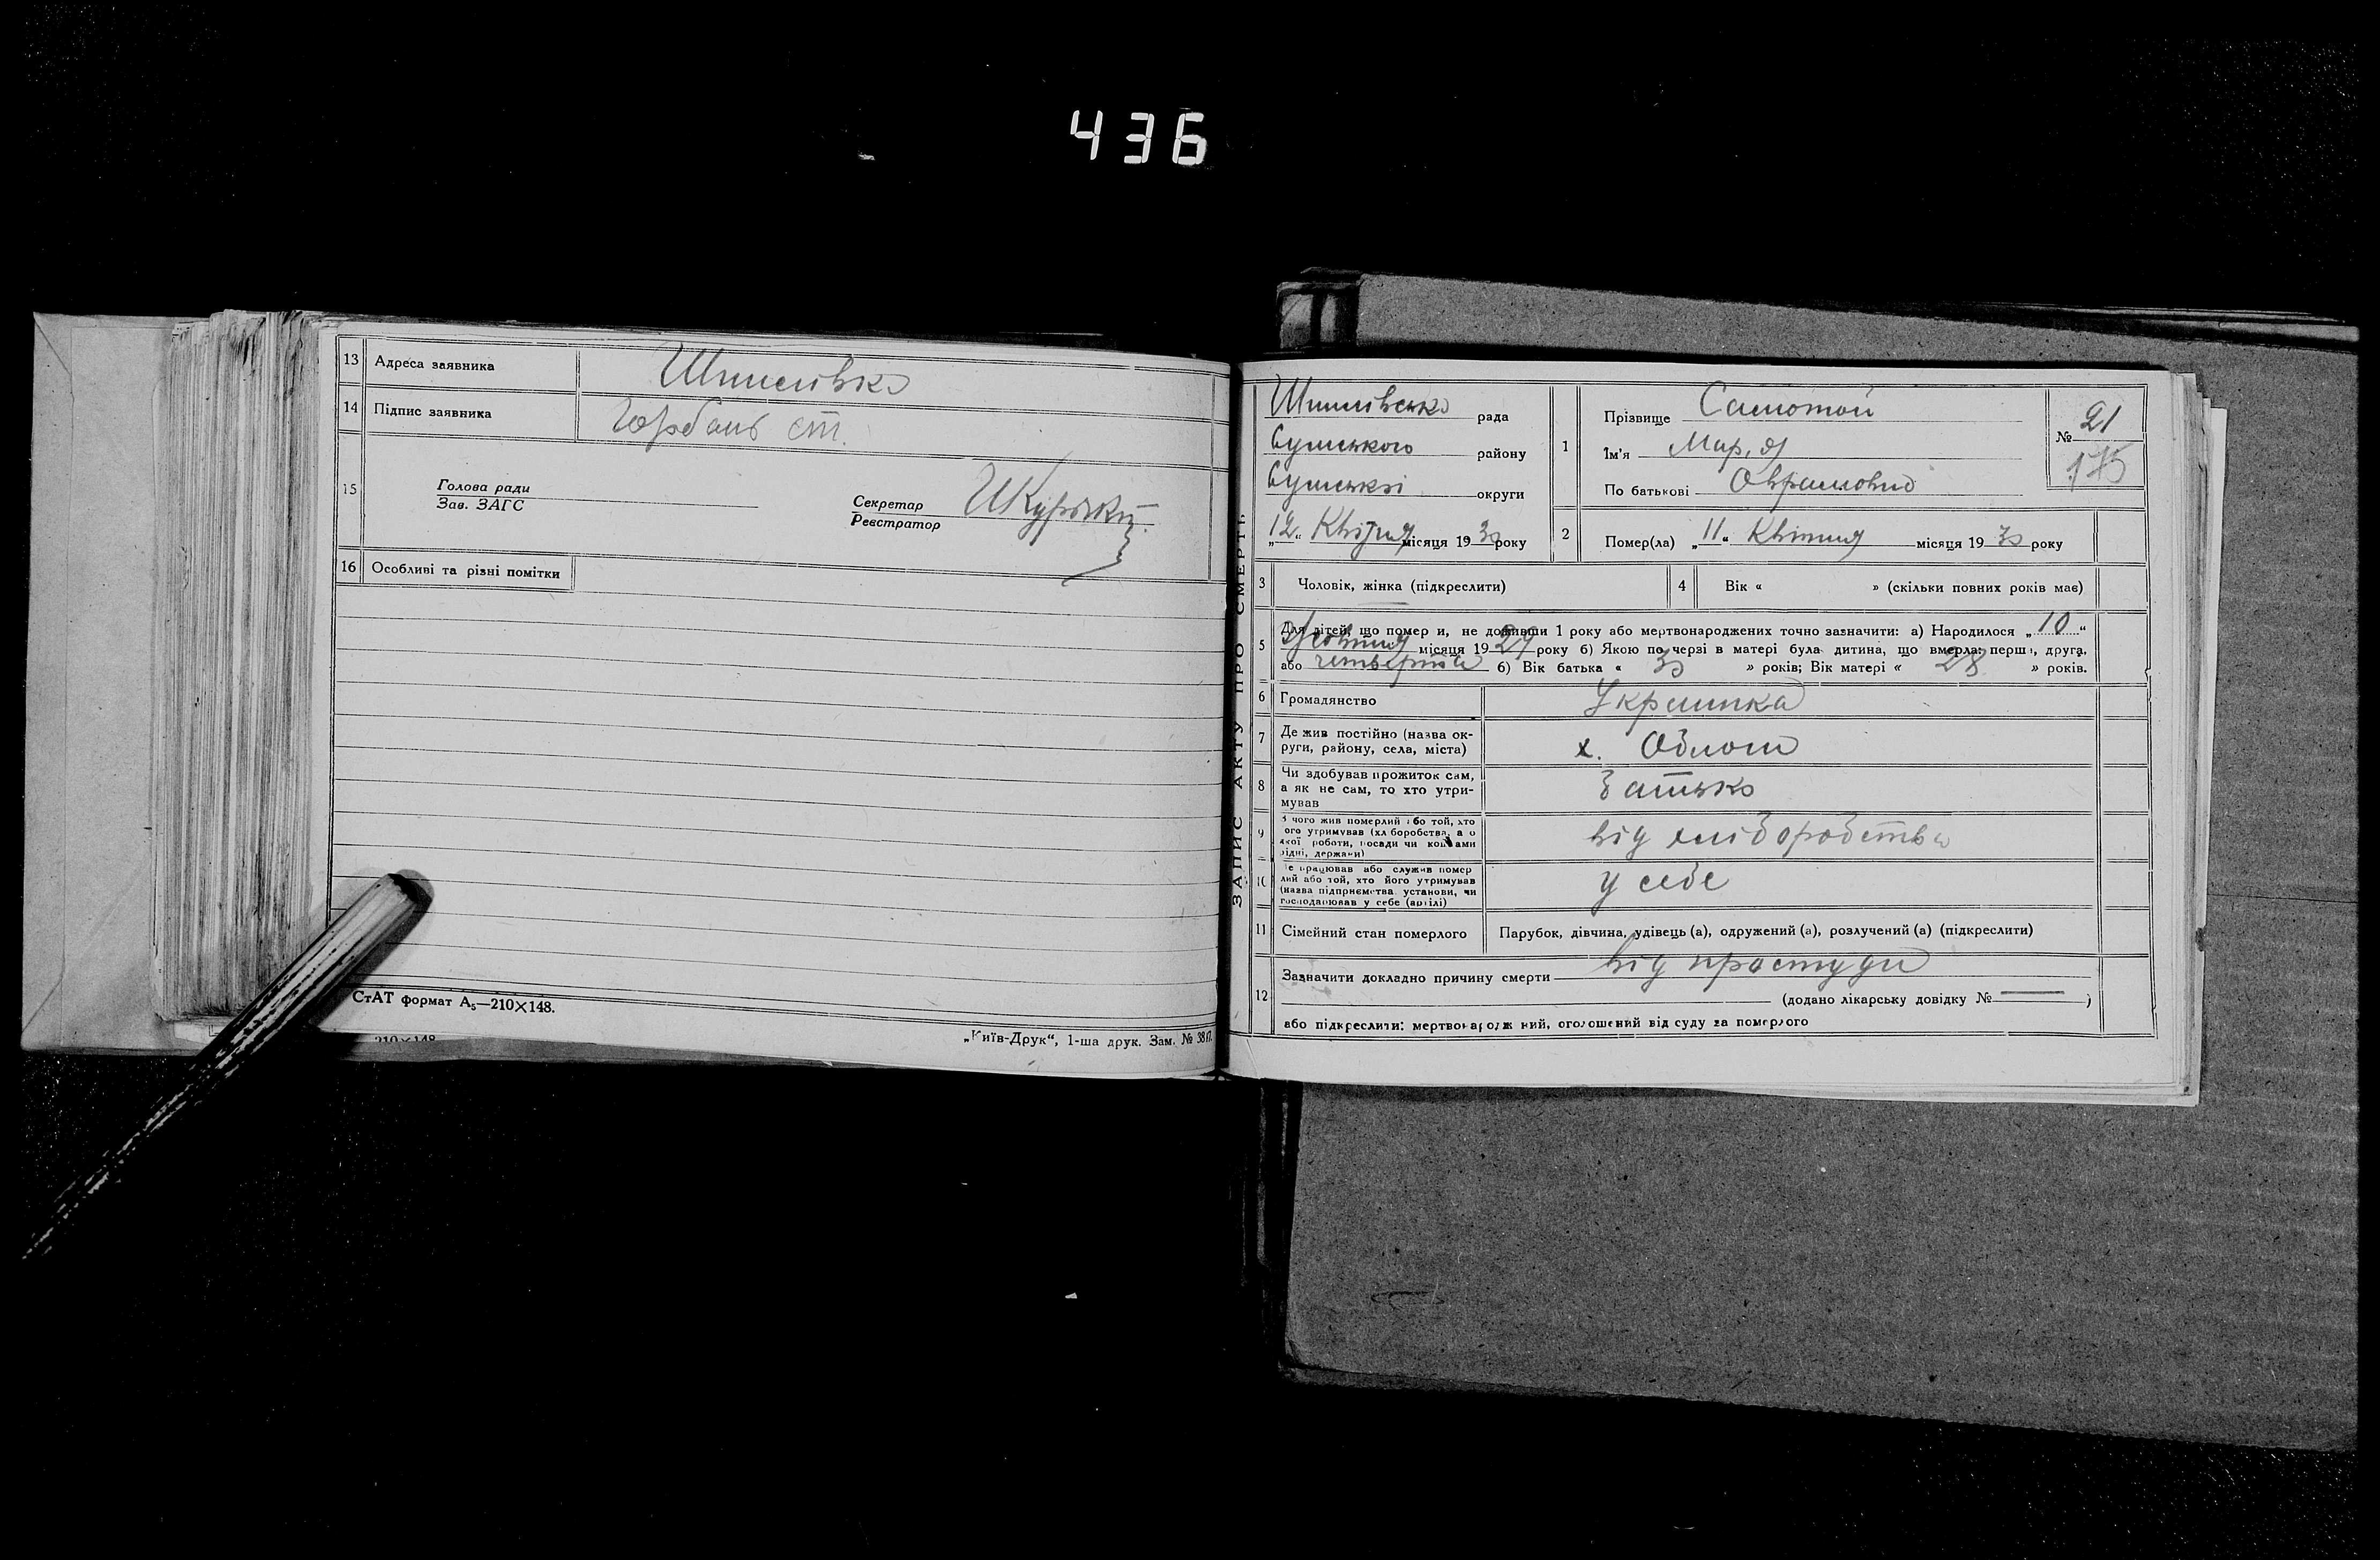 436
13 Адреса заявника Шпилівка
14 Підпис заявника Горбань ст.
15 Голова ради
Зав. ЗАГС
Секретар
Реєстратор
16 Особливі та різні помітки
СтАТ формат А₅—210×148.
210×148
„Київ-Друк“, 1-ша друк. Зам. №
ЗАПИС АКТУ ПРО СМЕРТЬ
Шпилівська рада
Сумського району
Сумської округи
„12“ Квітня місяця 1930 року
1 Прізвище Самотой
Ім'я Мар,я
По батькові Оврамовна
№ 21
175
2 Помер(ла) „11“ Квітня місяця 1930 року
3 Чоловік, жінка (підкреслити)
4 Вік « » (скільки повних років має)
5 Для дітей, що померли, не доживши 1 року або мертвонароджених точно зазначити: а) Народилося „10“
Жовтня місяця 1929 року б) Якою по черзі в матері була дитина, що вмерла: перша, друга,
або четверта б) Вік батька « 30 » років; Вік матері « 28 » років.
6 Громадянство Украинка
7 Де жив постійно (назва ок-
руги, району, села, міста) х.
8 Чи здобував прожиток сам,
а як не сам, то хто утри-
мував батько
9 З чого жив померлий або той, хто
його утримував (хліборобства, а о
якої роботи, посади чи коштами
рідні, держави) від хліборобства
10 Де працював або служив помер
лий або той, хто його утримував
(назва підприємства, установи, чи
господарював у себе (артілі) у себе
11 Сімейний стан померлого Парубок, дівчина, удівець (а), одружений (а), розлучений (а) (підкреслити)
12 Зазначити докладно причину смерти від простуди
(додано лікарську довідку № — )
або підкреслити: мертвонароджений, оголошений від суду за померлого